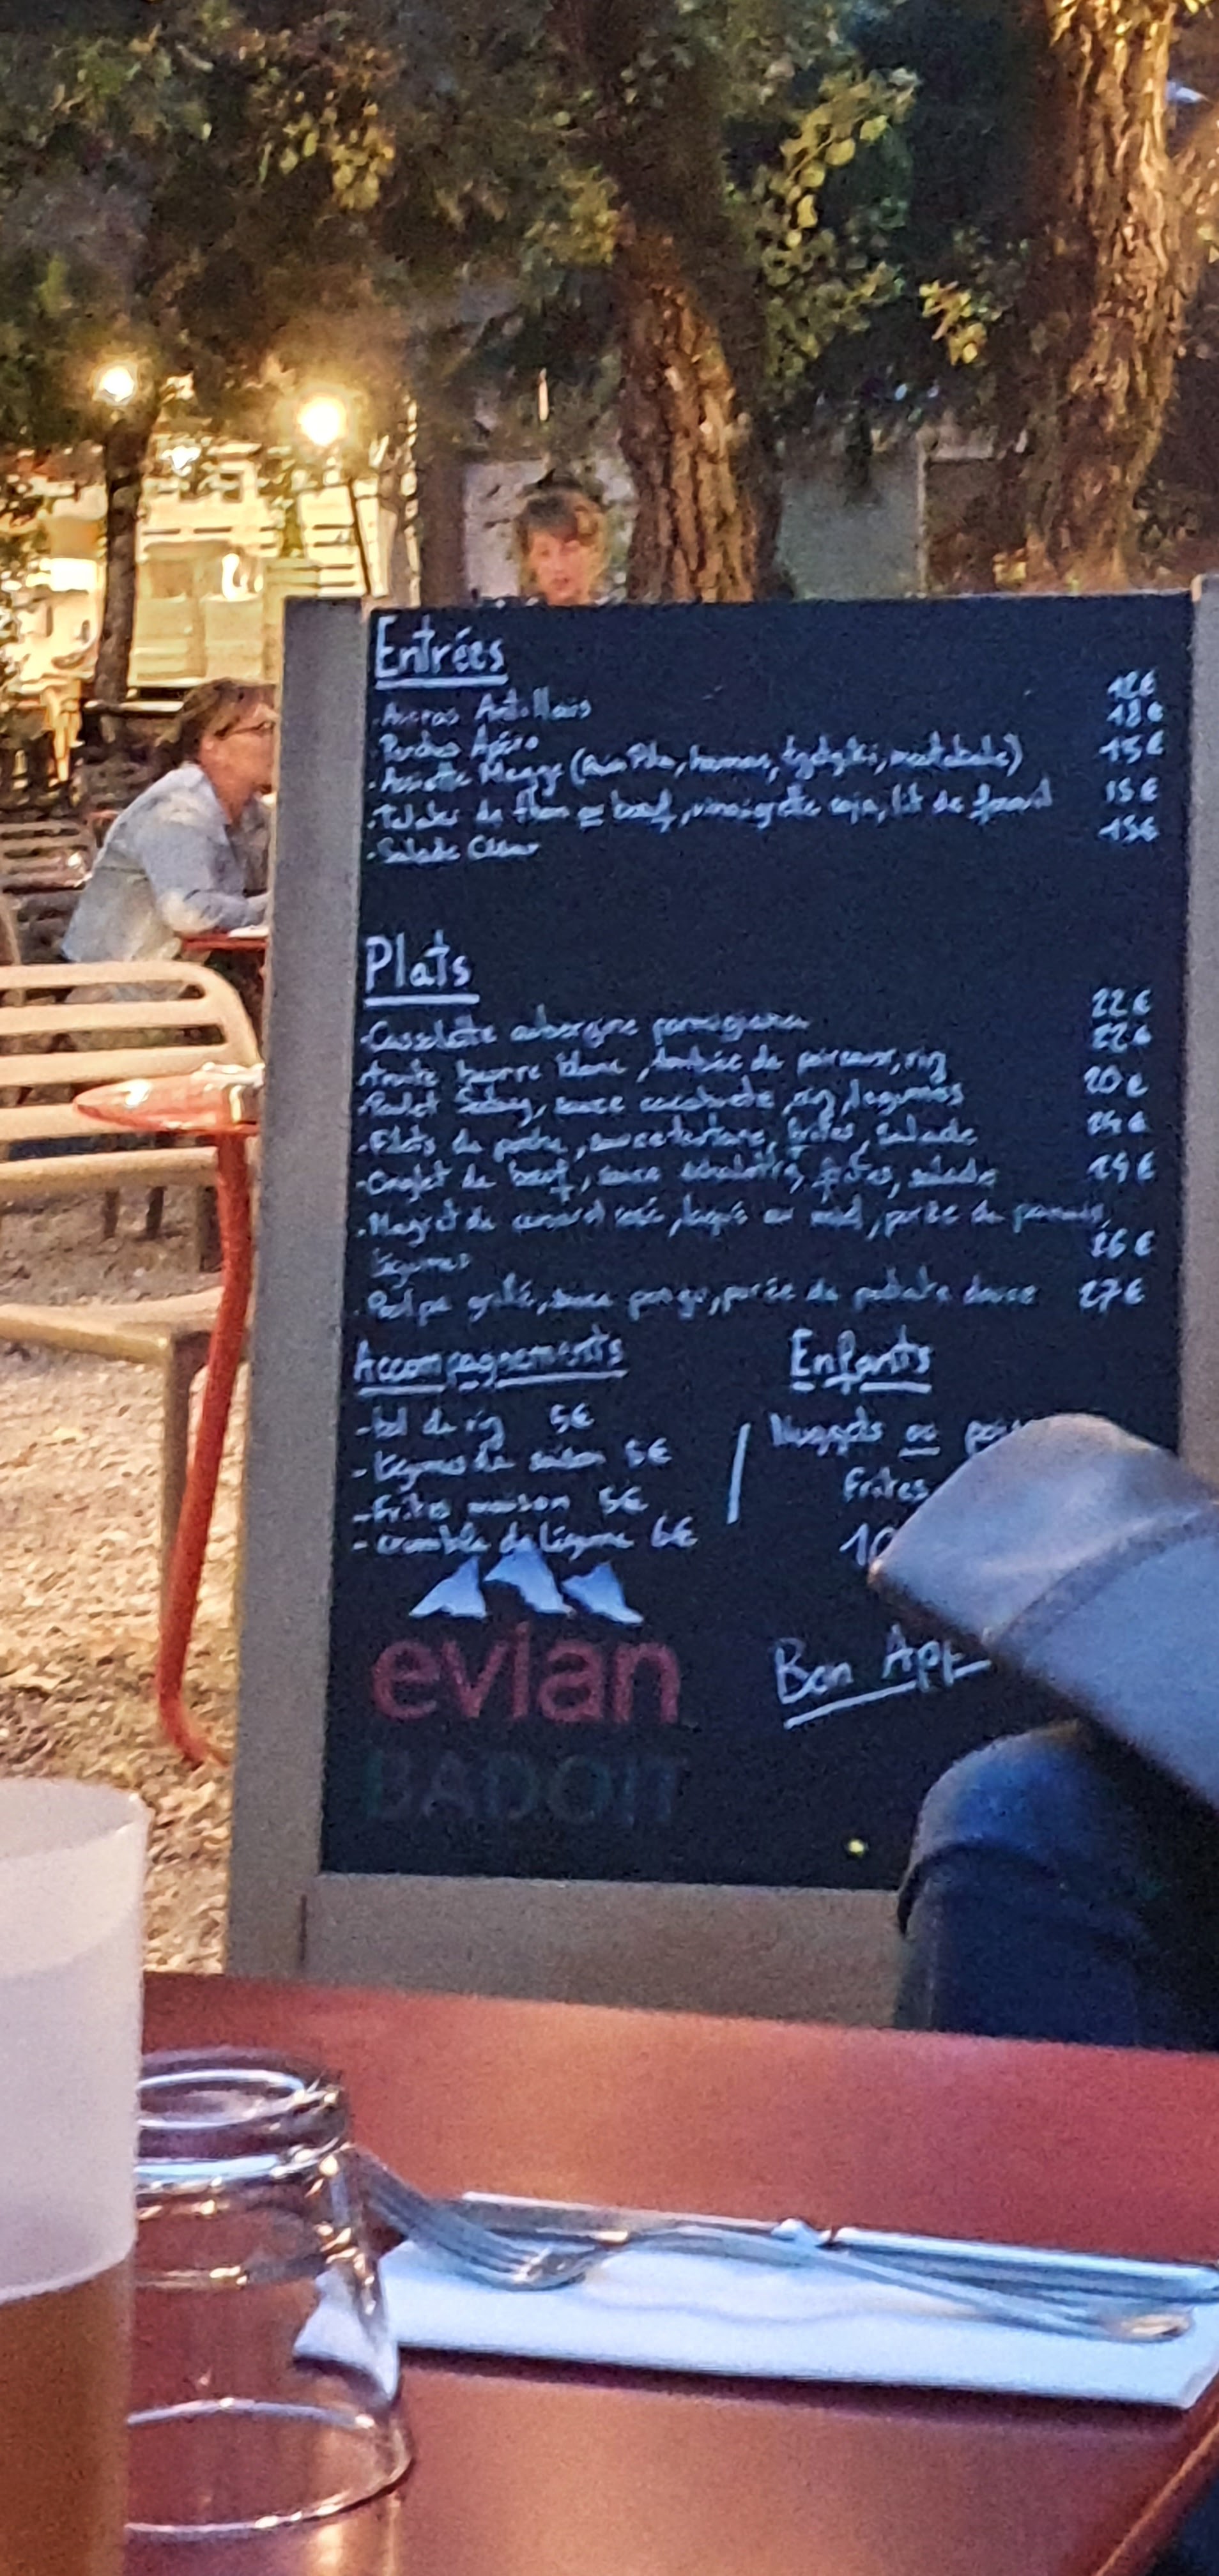 Entrées
. Accras Antillais 12€
. Planche Apéro 18€
. Assiette Mezze (, houmous, tzatziki, moutabale) 15€
. de thon ou bœuf, vinaigrette soja, lit de fenouil 15€
. Salade César 15€
Plats
. Cassolette aubergine parmigiana 22€
. Truite beurre blanc, de poireaux, riz 22€
. Poulet, sauce cacahuète, riz, légumes 20€
. Filets de, sauce tartare, frites, salade 24€
. Onglet de bœuf, sauce échalotte, frites, salade 24€
. Magret de canard rosé, laqué au miel, purée de panais,
légumes 26€
. Poulpe grillé, sauce ponzu, purée de patate douce 27€
Accompagnements
- bol de riz 5€
- légumes de saison 5€
- frites maison 5€
- crumble de légume 6€
Enfants
Nuggets ou
Frites
10
evian
BADOIT
Bon App